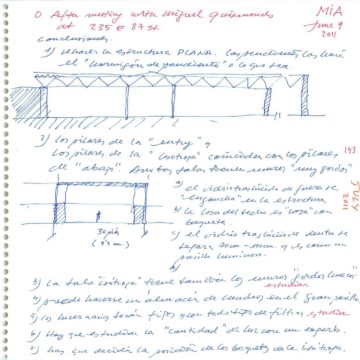 0 After meeting with Miguel Quismondo
at 235 E 87 St.
MIA
June 9
2011
Conclusiones.
1) rehacer la estructura PLANA. Las pendientes las hará
el "hormigón de pendiente" o lo que sea.
2) Los pilares de la "entry" y
los pilares de la coinciden con los pilares
de "abajo". Ambas salas tienen muros "muy gordos"
143
JULY
2011
a) el vidrio traslúcido de fuera se
"engancha" en la estructura
b) la losa del techo es losa con
boquetes
c) el vidrio traslúcido de dentro se
separa y es como un
pasillo luminoso.
3) La sala tiene también los muros "gordos huecos"
estudiar
4) puede hacerse un almacén de cuadros en el
5) los lucernarios serán fijos y con todo tipo de filtros estudiar
6) Hay que estudiar la "cantidad" de luz con un experto.
7) hay que decidir la posición de los boquetes de la